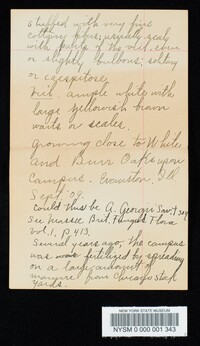 stuffed with very fine
cottony fibres; usually scaly
with parts of the veil, even
or slightly bulbous; solitary
or caespitose.
Veil, ample white with
large yellowish brown
warts or scales.
Growing close to White
and Burr Oaks upon
Campus. Evanston, Ill
Sept. '09.
Could this be A. Georgii
See Massee Brit. Fungus Flora
Vol. 1, p. 413.
Several years ago, the campus
was fertilized by spreading
on a large amount of
manure from Chicago Stock
yards.
NEW YORK STATE MUSEUM
NYSM 0 000 001 343